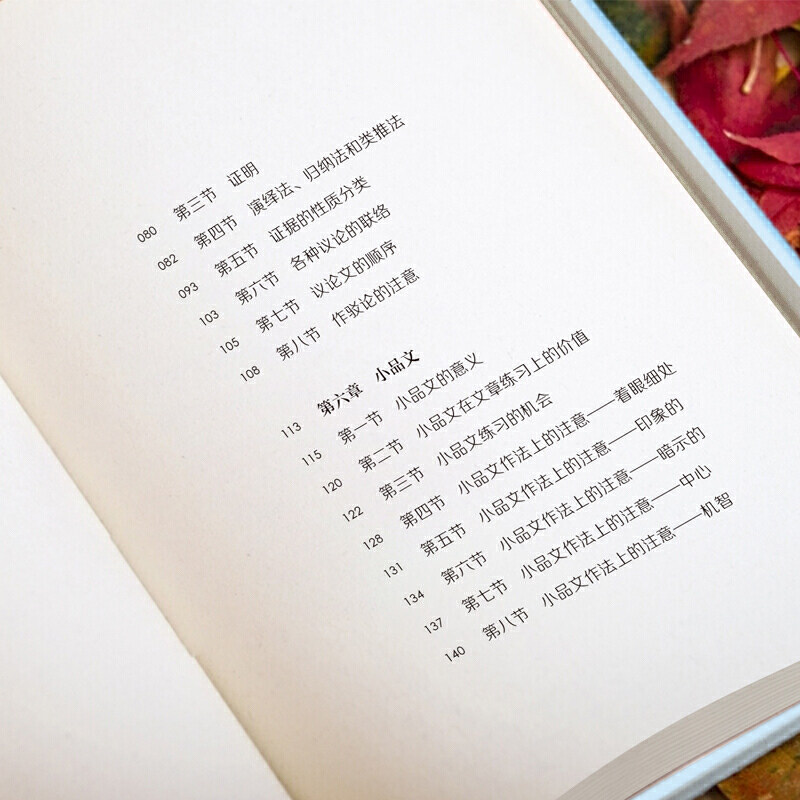 080 第三节 证明
082 第四节 演绎法、归纳法和类推法
093 第五节 证据的性质分类
103 第六节 各种议论的联络
105 第七节 议论文的顺序
108 第八节 作驳论的注意
113 第六章 小品文
115 第一节 小品文的意义
120 第二节 小品文在文章练习上的价值
122 第三节 小品文练习的机会
128 第四节 小品文作法上的注意——着眼细处
131 第五节 小品文作法上的注意——印象的
134 第六节 小品文作法上的注意——暗示的
137 第七节 小品文作法上的注意——中心
140 第八节 小品文作法上的注意——机智